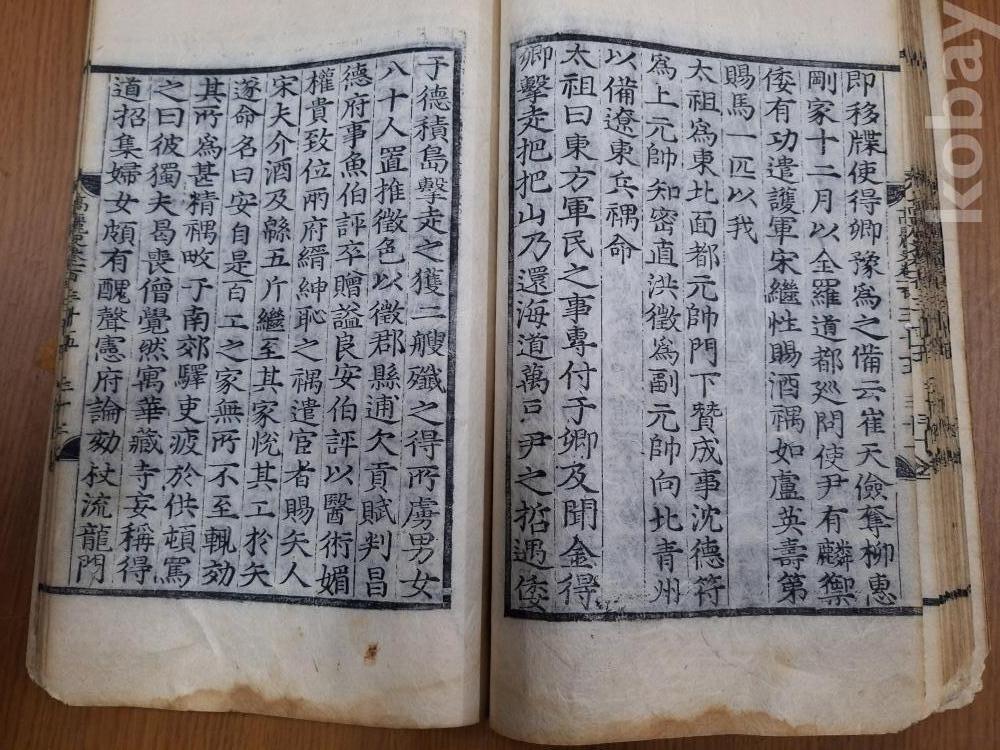 即移牒使得卿豫爲之備云崔天儉奪柳惠
剛家十二月以全羅道都廵問使尹有麟禦
倭有功遣護軍宋繼性賜酒禑如盧英壽第
賜馬一匹以我
太祖爲東北面都元帥門下贊成事沈德符
爲上元帥知密直洪徵爲副元帥向北青州
以備遼東兵禑命
太祖曰東方軍民之事專付于卿及聞金得
卿擊走把把山乃還海道萬戶尹之哲遇倭
于德積島擊走之獲二艘殲之得所虜男女
八十人置推徵色以徵郡縣逋欠貢賦判昌
德府事魚伯評卒贈謚良安伯評以醫術媚
權貴致位兩府縉紳恥之禑遣宦者賜矢人
宋夫介酒及緜五斤繼至其家恱其工於矢
遂命名曰安自是百工之家無所不至輒効
其所爲甚精禑畋于南郊驛吏疲於供頓罵
之曰彼獨夫曷喪僧覺然寓華藏寺妄稱得
道招集婦女頗有醜聲憲府論劾杖流龍門
高麗史卷一百三十五
kobay